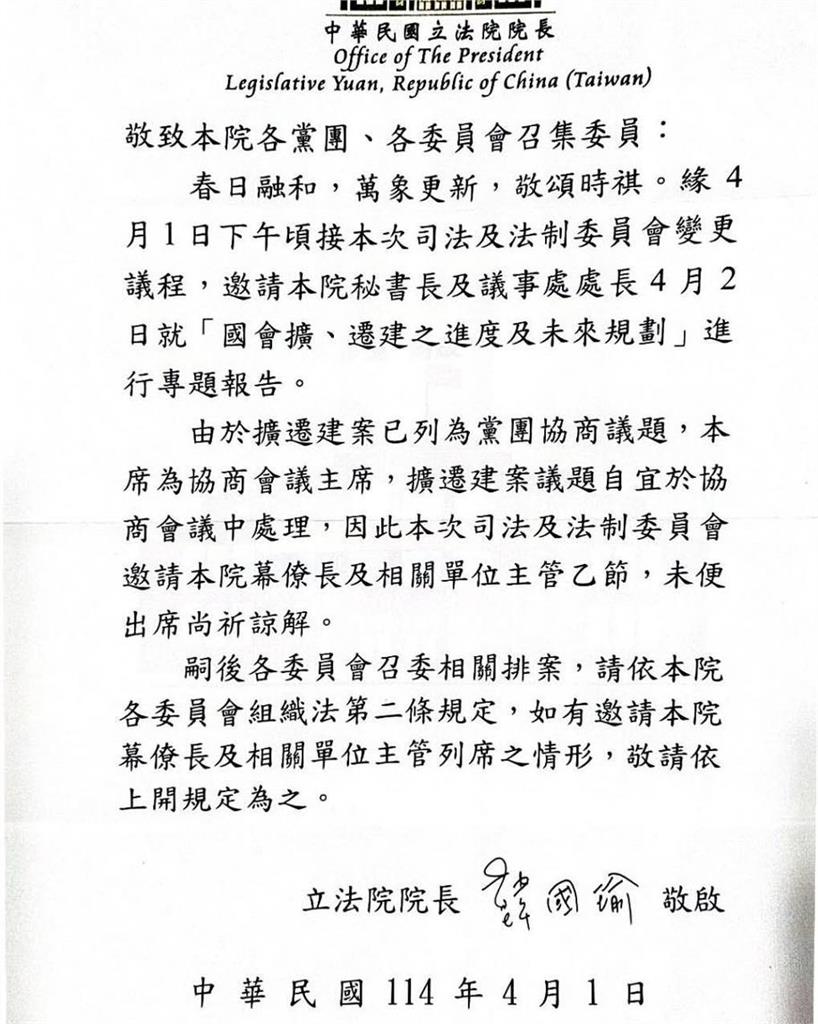 中華民國立法院院長
Office of The President
Legislative Yuan, Republic of China (Taiwan)
敬致本院各黨團、各委員會召集委員：
春日融和，萬象更新，敬頌時祺。緣 4
月 1 日下午頃接本次司法及法制委員會變更
議程，邀請本院秘書長及議事處處長 4 月 2
日就「國會擴、遷建之進度及未來規劃」進
行專題報告。
由於擴遷建案已列為黨團協商議題，本
席為協商會議主席，擴遷建案議題自宜於協
商會議中處理，因此本次司法及法制委員會
邀請本院幕僚長及相關單位主管乙節，未便
出席尚祈諒解。
嗣後各委員會召委相關排案，請依本院
各委員會組織法第二條規定，如有邀請本院
幕僚長及相關單位主管列席之情形，敬請依
上開規定為之。
立法院院長 韓國瑜 敬啟
中華民國 114 年 4 月 1 日